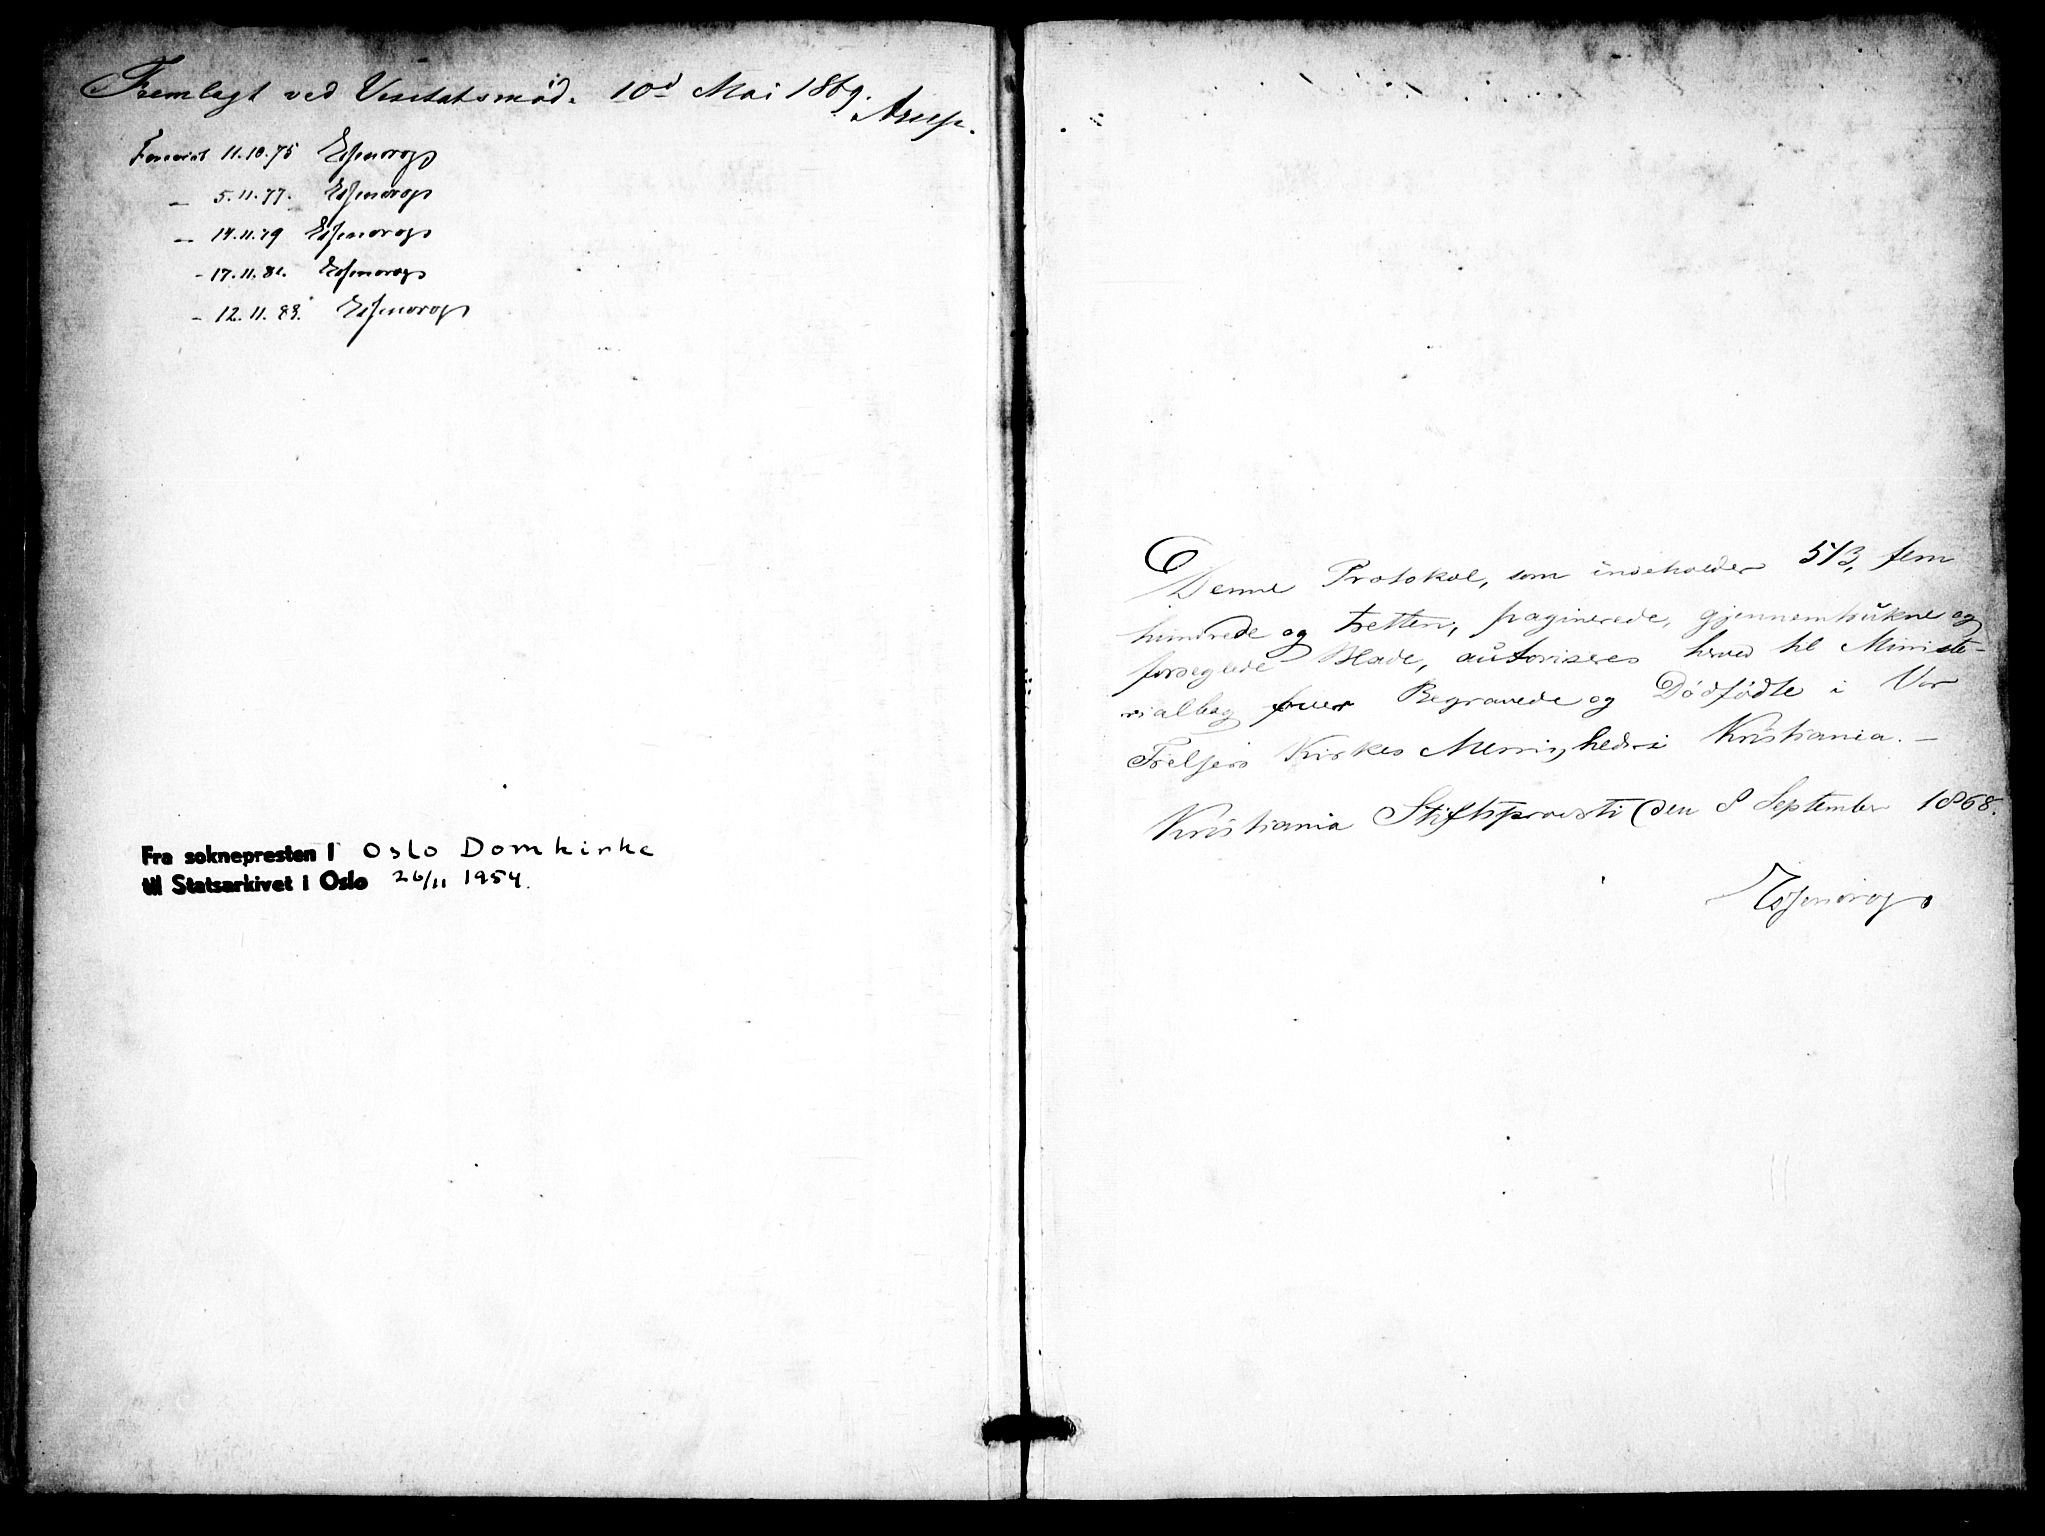 Fremlagt ved Visitatsmöde 10d Mai 1869.
Arup.
Forevist 11.10.75 Essendrop
— 5.11.77. Essendrop
— 14.11.79 Essendrop
- 17.11.81. Essendrop
- 12.11.83. Essendrop
Fra soknepresten i Oslo Domkirke
til Statsarkivet i Oslo 26/11 1954.
Denne Protokol, som indeholder 513, fem
hundrede og tretten, paginerede, gjennemtrukne og
forseglede Blade, autoriseres herved til Ministe-
rialbog over Begravede og Dødfødte i Vor
Frelsers Kirkes Menighed i Kristiania. —
Kristiania Stiftsprovsti den 8 September 1868.
Essendrop